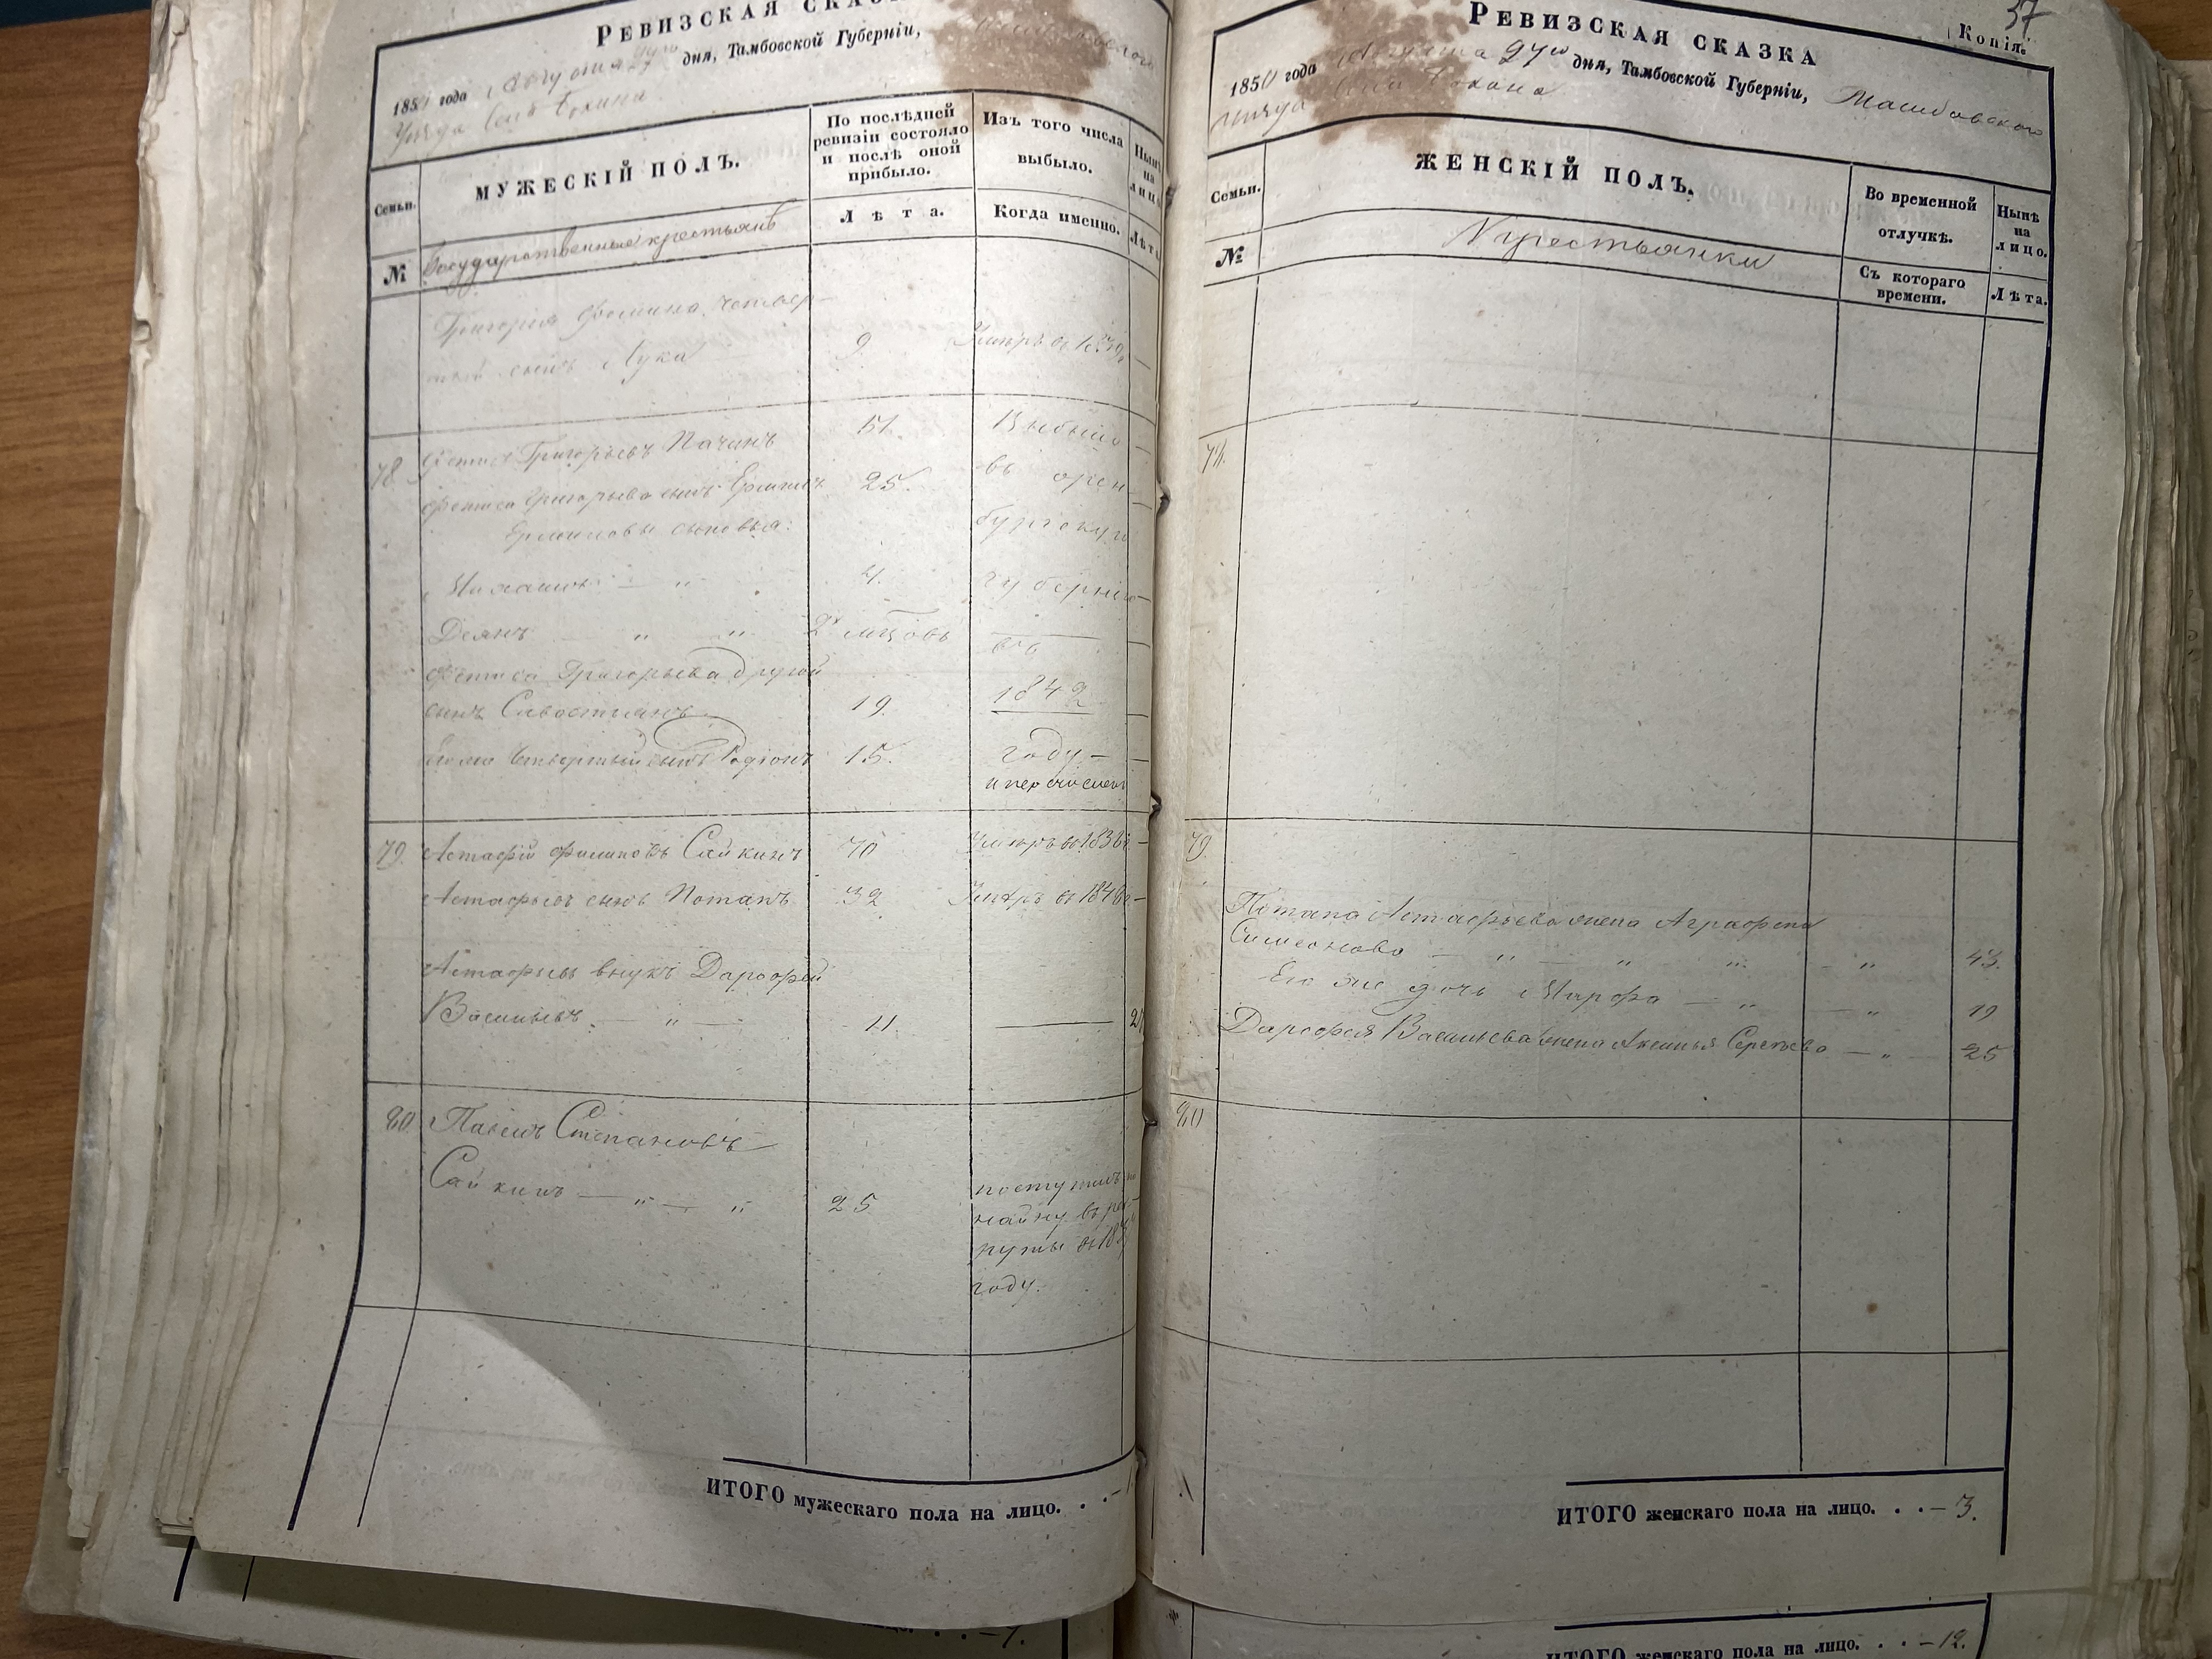 Ревизская сказка
1850 года Августа 27го дня, Тамбовской Губерніи,
Уѣзда Села
Семьи.
МУЖЕСКІЙ ПОЛЪ.
По послѣдней ревизіи состояло и послѣ оной прибыло.
Изъ того числа выбыло.
Нынѣ на лицо.
Лѣта.
Когда именно.
Лѣта.
№
Государственные крестьянѣ
Григорія Фомина четвер-
тый сынъ Лука 9 Умеръ въ
78 Фетисъ Григорьевъ Пачинъ 51. Выбыли
Фетиса Григорьева сынъ Ермилъ 25. въ орен
Ермиловы сыновья: бургскую
4. губернію
Демянъ " " 2х мцовъ въ
Фетиса Григорьева другой
сынъ Савостиянъ 19. 1842
Его же четвертый сынъ Родіонъ 15. году –
и перечислены
79. Астафій Филиповъ Сайкинъ 70 Умеръ въ 1836г –
Астафьевъ сынъ Потапъ 32 Умеръ въ 1846г –
Астафьевъ внукъ Дарофей
Васильевъ. — " — 11. —
80. Павелъ Степановъ
Сайкинъ — " — " 25 поступилъ
найму въ рек
руты въ
году.
ИТОГО мужескаго пола на лицо. . . – 1
37
Копія.
Ревизская сказка
1850 года Августа 27го дня, Тамбовской Губерніи, Тамбовского
уѣзда Села
Семьи.
ЖЕНСКІЙ ПОЛЪ.
Во временной отлучкѣ.
Нынѣ на лицо.
№
Крестьянки
Съ котораго времени.
Лѣта.
78.
79.
Потапа Астафьева жена Аграфена
Симеонова — " — " " — " 43.
Его же дочь Марфа — " — " 19
Дарофея Васильева жена Аксинья Сергѣева — " — 25
80
ИТОГО женскаго пола на лицо. . . – 3.
ИТОГО женскаго пола на лицо. . . – 12.